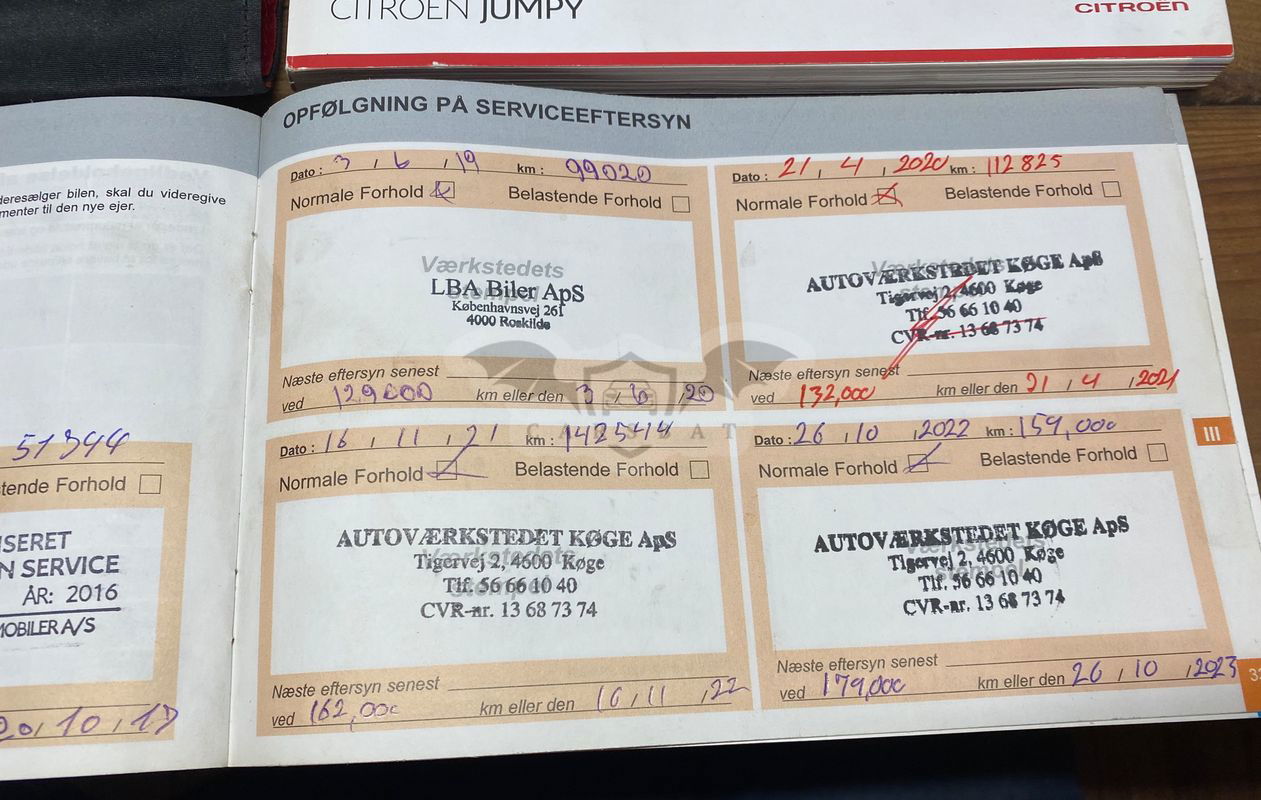 CITROËN JUMPY
CITROËN
OPFØLGNING PÅ SERVICEEFTERSYN
deresælger bilen, skal du videregive
menter til den nye ejer.
51344
tende Forhold
ISERET
N SERVICE
ÅR: 2016
MOBILER A/S
20, 10, 17
Dato : 3 , 6 , 19 km : 99020
Normale Forhold Belastende Forhold
Værkstedets
stempel
LBA Biler ApS
Københavnsvej 261
4000 Roskilde
Næste eftersyn senest
ved 129000 km eller den 3 , 6 , 20
Dato : 21 , 4 , 2020 km : 112825
Normale Forhold Belastende Forhold
Værkstedets
AUTOVÆRKSTEDET KØGE ApS
Tigervej 2, 4600 Køge
Tlf. 56 66 10 40
CVR-nr. 13 68 73 74
Næste eftersyn senest
ved 132,000 km eller den 21 , 4 , 2021
Dato : 16 , 11 , 21 km : 142544
Normale Forhold Belastende Forhold
Værkstedets
stempel
AUTOVÆRKSTEDET KØGE ApS
Tigervej 2, 4600 Køge
Tlf. 56 66 10 40
CVR-nr. 13 68 73 74
Næste eftersyn senest
ved 162,000 km eller den 16 , 11 , 22
Dato : 26 , 10 , 2022 km : 159,000
Normale Forhold Belastende Forhold
Værkstedets
stempel
AUTOVÆRKSTEDET KØGE ApS
Tigervej 2, 4600 Køge
Tlf. 56 66 10 40
CVR-nr. 13 68 73 74
Næste eftersyn senest
ved 179,000 km eller den 26 , 10 , 2023
III